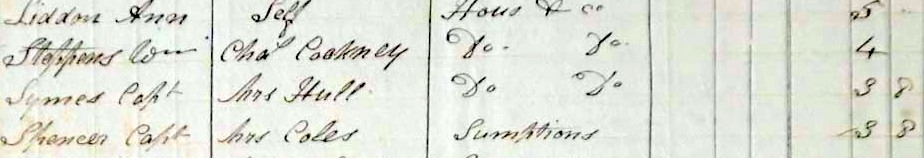 Liddon Ann Self Hous & co 5
Steppens Wm Chas Cockney Do. Do. 4
Symes Capt Mrs Hull Do Do 3 8
Spencer Capt Mrs Coles Sumptions 3 8